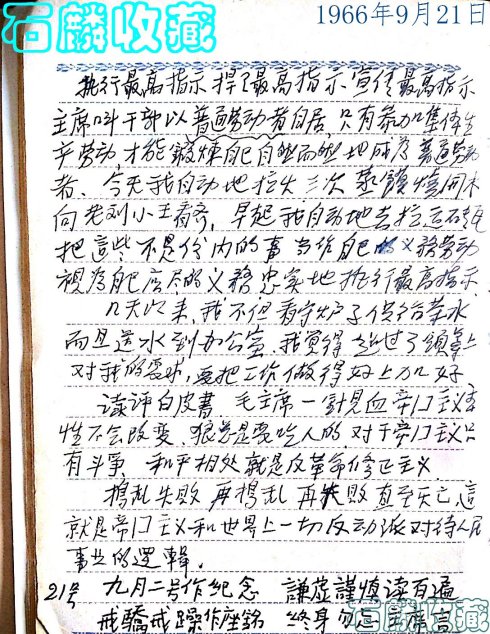 石麟收藏
1966年9月21日
执行最高指示 捍卫最高指示 宣传最高指示
主席叫干部以普通劳动者自居,只有参加集体生
产劳动,才能锻炼自然而然地成为普通劳动
者、今天我自动地拉火三次 烧开水
向老刘小王看齐,早起我自动地去拉运石头
把這些不是份内的事当作义務劳动
視为应尽的义務忠实地执行最高指示
几天以来,我不但看守炉子供给茶水
而且送水到办公室,我覚得超过了領导上
对我的要求,要把工作做得好上加好
读評白皮書 毛主席一針見血帝囗主义本
性不会改变、狼总是要吃人的,对于帝囗主义只
有斗爭,和平相处就是反革命修正主义
搗乱失敗 再搗乱 再失敗 直至灭亡 這
就是帝囗主义和世界上一切反动派对待人民
事业的邏輯。
21号 九月二号作纪念 謙虚謹慎读百遍
戒驕戒躁作座銘 終身勿忘
石麟收藏